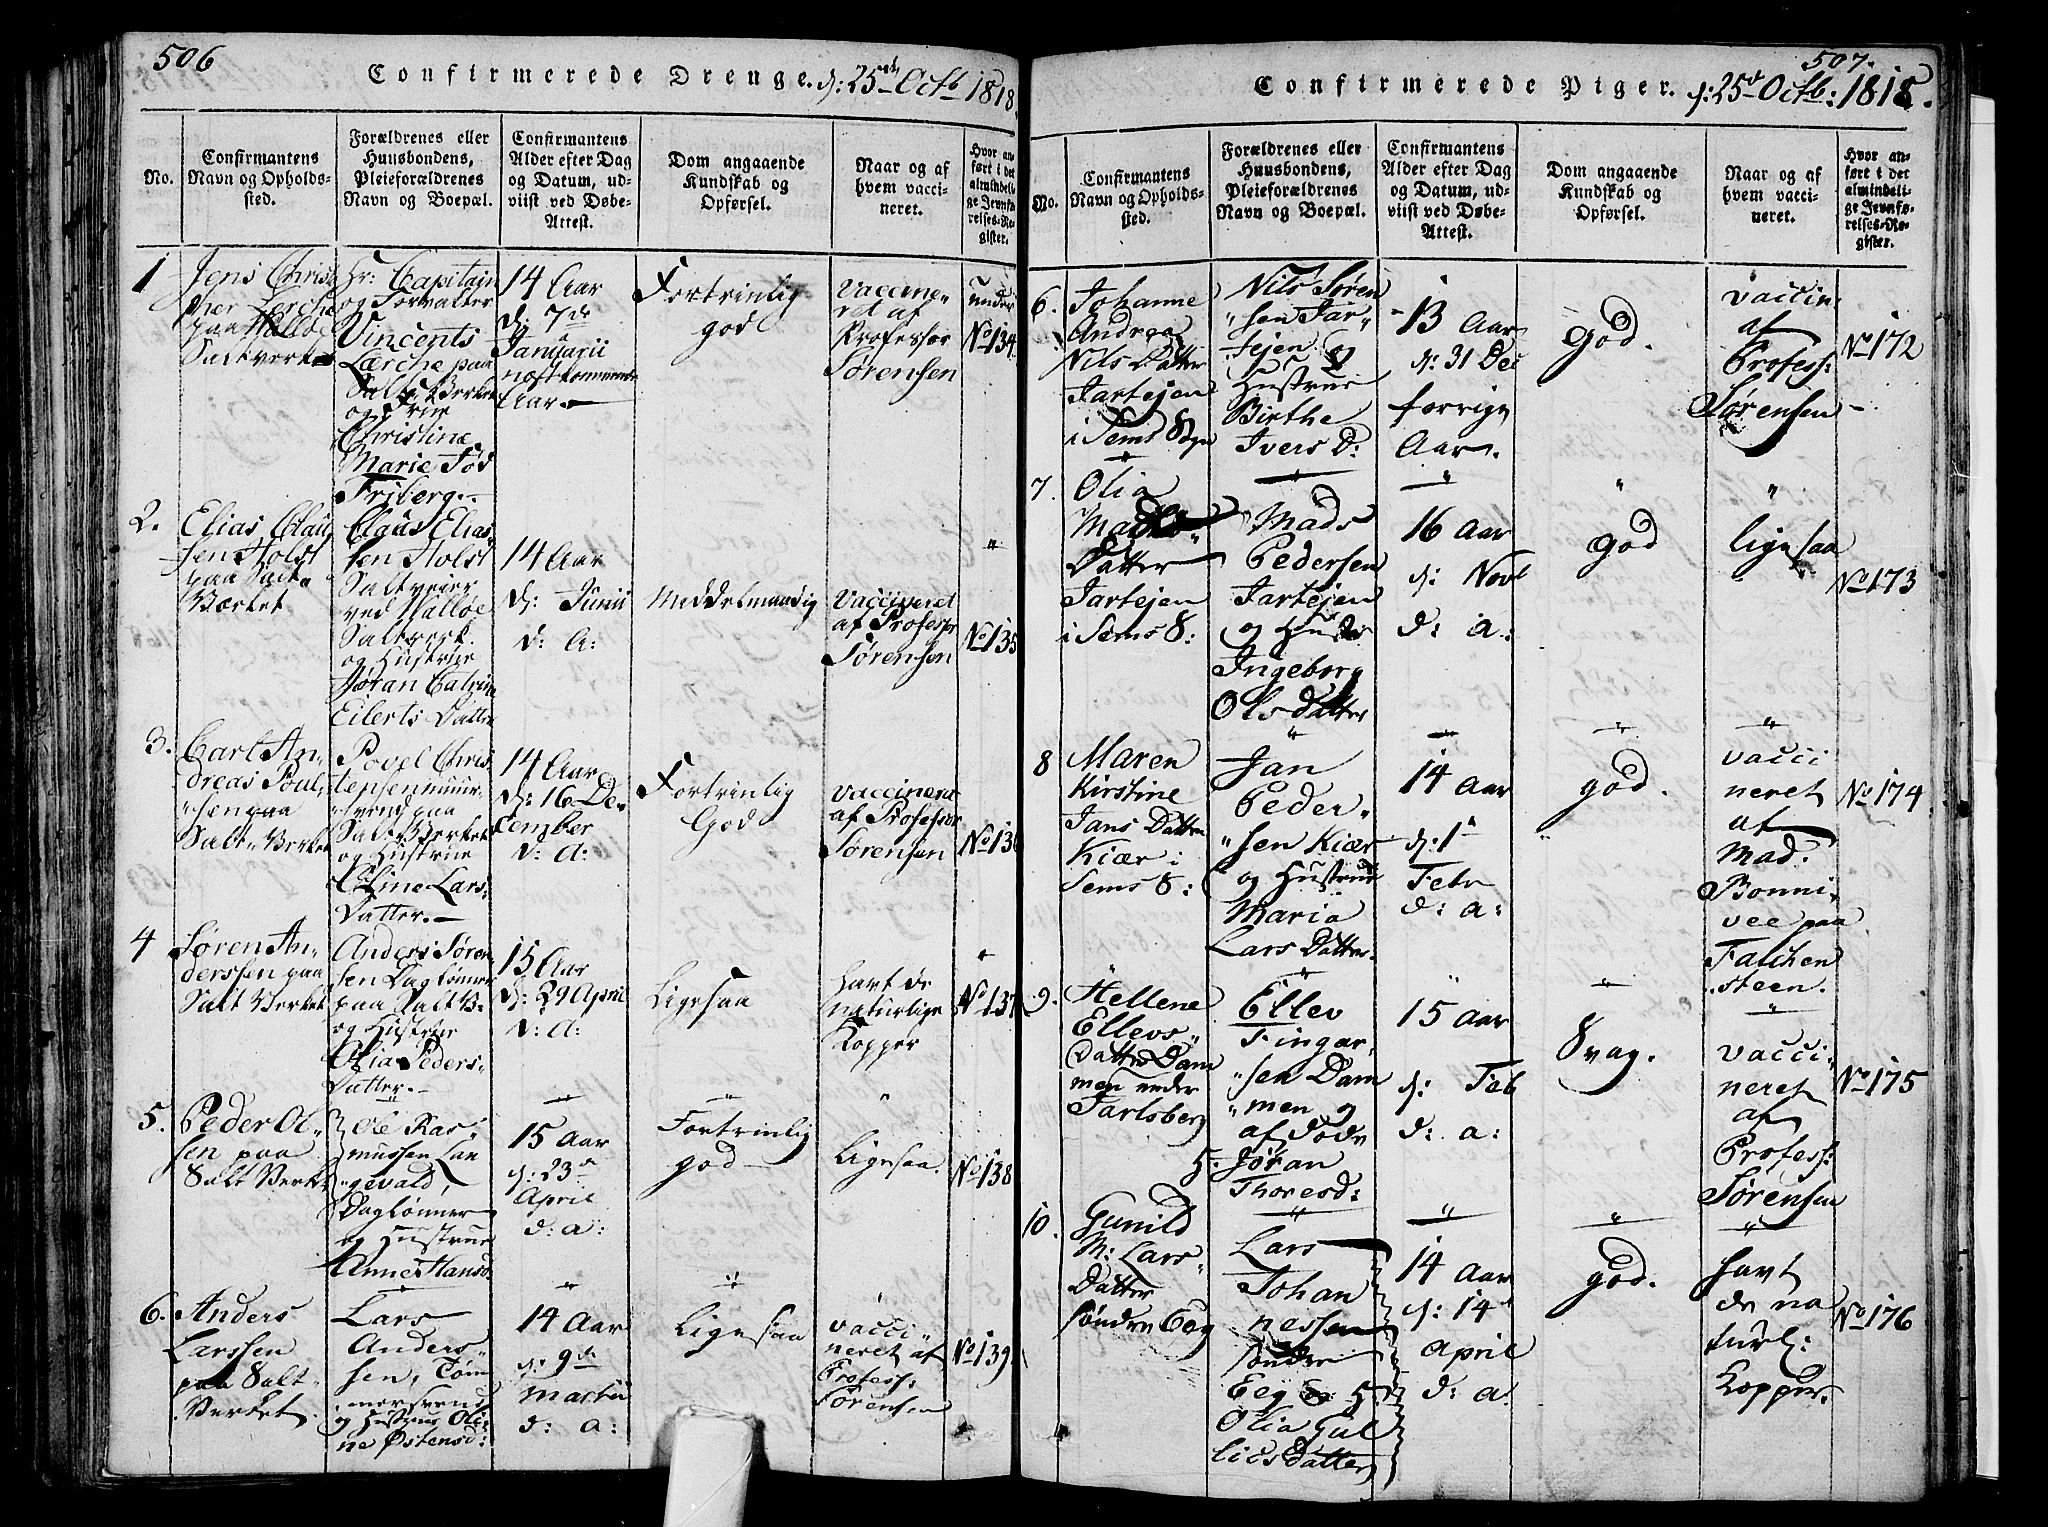 506
Confirmerede Drenge. d: 25de Octb 1818
No.
Confirmantens
Navn og Opholds-
sted.
Forældrenes eller
Huusbondens,
Pleieforældrenes
Navn og Boepæl.
Confirmantens
Alder efter Dag
og Datum, ud-
viist ved Døbe-
Attest.
Dom angaaende
Kundskab og
Opførsel.
Naar og af
hvem vacci-
neret.
Hvor an-
ført i det
almindeli-
ge Jevnfø-
relses-Re-
gister.
1
Jens Christo
pher Lerche
paa Walløe
Saltverket
Hr: Capitain
og Forvalter
Vincents
Lærche paa
Salt Verket
og Frue
Christine
Marie Fød
Friberg.
14 Aar
d: 7de
Januarii
næstkommende
Aar.
Fortrinlig
god
Vaccine„
ret af
Professor
Sørensen
under
No 134
2.
Elias Clau
sen Holst
paa Salt
Værket
Claus Elias„
sen Holst
Saltveier
ved Walløe
Saltverk.
og Hustrue
Jøran Catrine
Eilerts Datter
14 Aar
d: Junii
d: A:
Middelmaadig
Vaccineret
af Professor
Sørensen
No 135
3.
Carl An„
dreas Poul„
„sen paa
Salt„Verket
Povel Chris
tensen muur„
svend paa
Salt Verket
og Hustrue
Eline Lars
Datter.
14 Aar
d: 16 De„
cember
d: A:
Fortrinlig
God
Vaccineret
af Professor
Sørensen
No 136
4
Søren An„
derssen paa
Salt Verket
Anders Søren
sen Daglønner
paa Salt V:
og Hustrue
Olia Peders„
Datter.
15 Aar
d: 29 April
d: A:
Ligesaa
Havt de
naturlige
Kopper
No 137
5.
Peder Ol„
sen paa
Salt Verket
Ole Ras„
mussen Lan
„gevald,
Daglønner
og Hustrue
Anne Hansd:
15 Aar
d: 23de
April
d: a:
Fortrinlig
god
Ligesaa.
No 138
6.
Anders
Larssen
paa Salt„
Verket.
Lars
Anders„
sen, Tøm
mersvend
og Hustrue Oli„
ne Østensd:
14 Aar
d: 9de
Martii
d: a:
Ligesaa
vacci„
neret af
Profess:
Sørensen
No 139
507.
Confirmerede Piger. d: 25de Octb: 1818.
No.
Confirmantens
Navn og Opholds-
sted.
Forældrenes eller
Huusbondens,
Pleieforældrenes
Navn og Boepæl.
Confirmantens
Alder efter Dag
og Datum, ud-
viist ved Døbe-
Attest.
Dom angaaende
Kundskab og
Opførsel.
Naar og af
hvem vacci-
neret.
Hvor an-
ført i det
almindeli-
ge Jevnfø-
relses-Re-
gister.
6.
Johanne
Andrea
Nils Datter
Jartejen
i Sems Sogn
Nils Søren
„sen Jar„
tejen og
Hustrue
Birthe
Ivers D:
13 Aar
d: 31 Dec
forrige
Aar.
God.
vaccin
af
Profess:
Sørensen
No 172
7.
Olia
Mads
Datter
Jartejen
i Sems S:
Mads
Pedersen
Jartejen
og Hustrue
Ingeborg
Ols datter
16 Aar
d: Novb
d: a:
god
ligesaa
No 173
8
Maren
Kirstine
Jans Datter
Kiær i
Sems S:
Jan
Peder„
„sen Kiær
og Hustrue
Maria
Lars Datter.
14 Aar
d: 1
Febr
d: a:
god.
vacci
neret
af
Mad.
Bonni„
vee paa
Falchen
steen.
No 174
9.
Hellene
Ellevs„
datter Dam
men under
Jarlsberg
Ellev
Fingar„
„sen Dam
„men og
af døde
H. Jøran
Thoresd:
15 Aar
d: Feb
d: a:
Svag.
vacci„
neret
af
Profess:
Sørensen
No 175
10.
Gunild
M: Lars„
Datter
søndre Eeg
Lars
Johan
nessen
søndre
Eeg og H.
Olia Gul
lics Datter
14 Aar
d: 14
April
d: a
god.
havt
de na
turl:
Kopper.
No 176